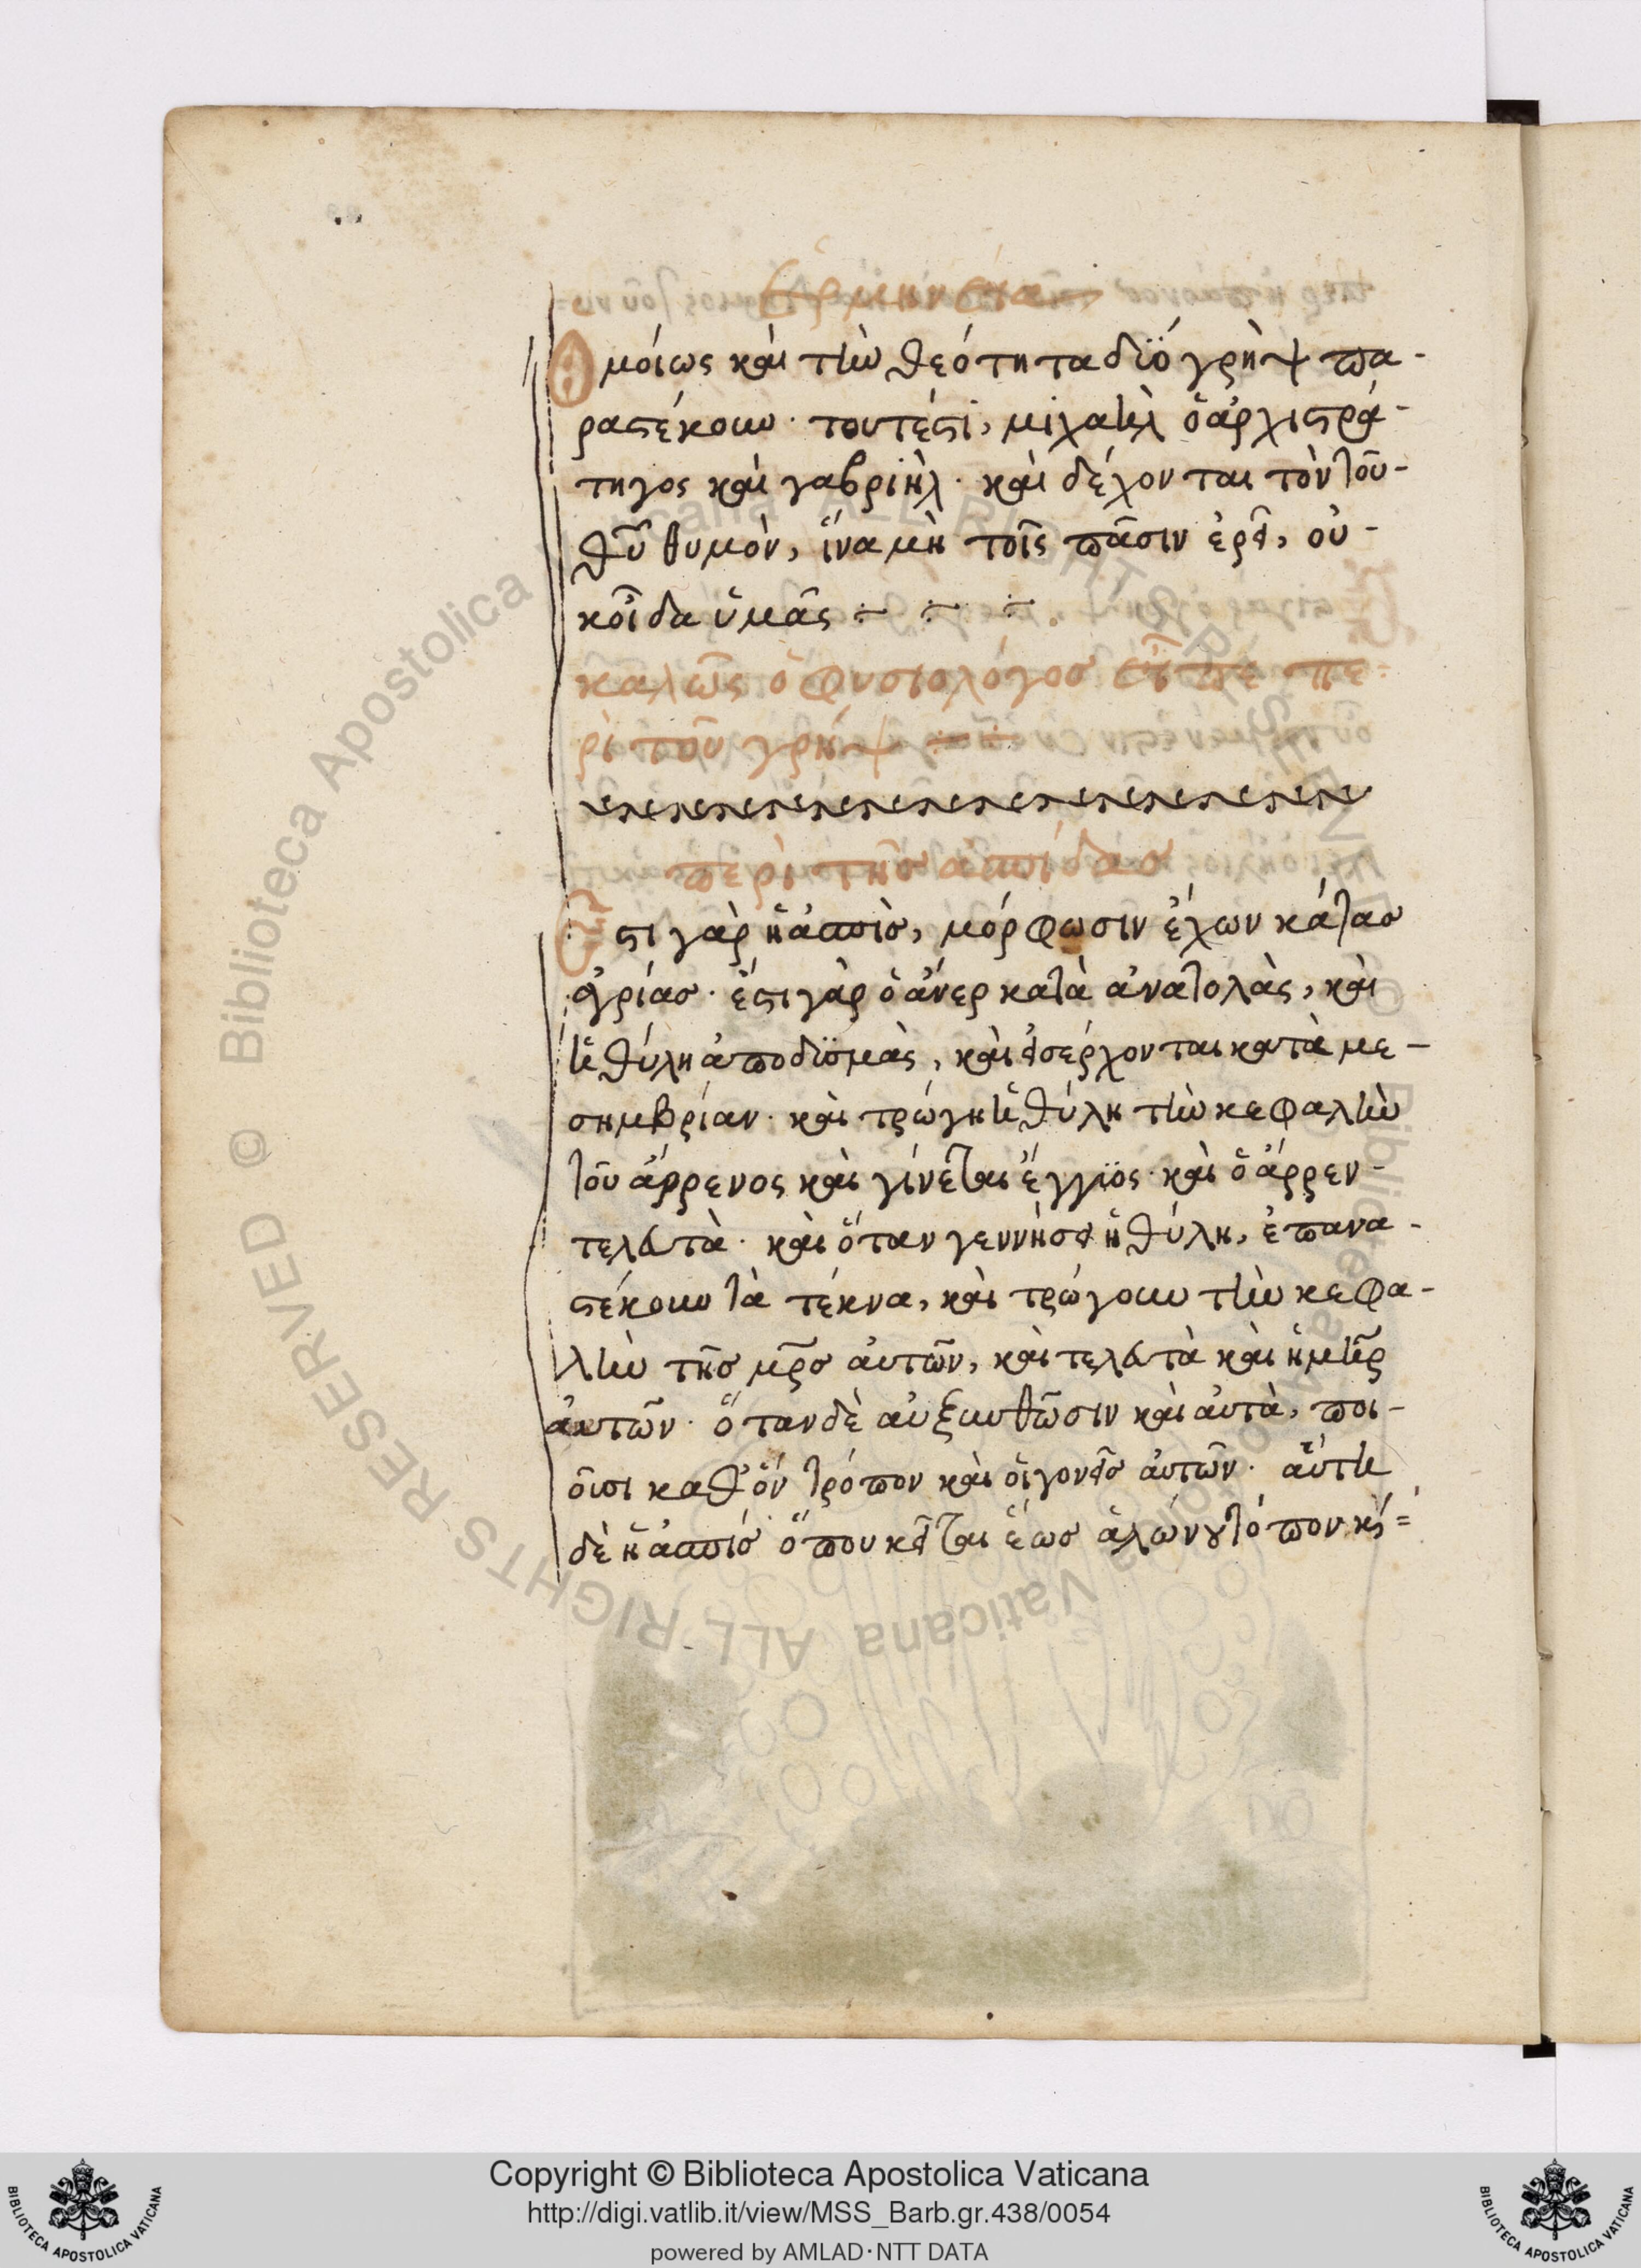 Ἑρμηνεία
Ὁμοίως καὶ τὴν θεότητα δϊὸ γρὴψ πα-
ραστέκουν· τουτέστι, μιχαὴλ ὁ ἀρχιστρά-
τηγος καὶ γαβριὴλ· καὶ δέχονται τὸν τοῦ-
θῦ θυμὸν, ἵνα μὴ τοῖς πᾶσιν ἐρεῖ, οὐ-
κ οἶδα ὑμᾶς ÷ ÷ ÷
καλῶς ὁ φυσιολόγος εἶπε πε-
ρὶ τοῦ γρήψ ÷ ÷
περὶ τῆς ἀσπίδας
Ἔστι γὰρ ἡ ἀσπὶς, μόρφωσιν ἔχων κάτας
ἀγρίας· ἔστι γὰρ ὁ ἄνερ κατὰ ἀνατολὰς, καὶ
ἡ θύλη ἀπο δϊσμὰς, καὶ εἰσέρχονται κατὰ με-
σημβρίαν· καὶ τρώγη ἡ θύλη τὴν κεφαλὴν
τοῦ ἄρρενος καὶ γίνεται ἔγγϊος· καὶ ὁ ἄρρεν-
τελευτὰ· καὶ ὅταν γεννήσει ἡ θύλη, ἐπανα-
στέκουν τὰ τέκνα, καὶ τρώγουν τὴν κεφα-
λὴν τῆς μρς αὐτῶν, καὶ τελευτὰ καὶ ἡ μῆρ
αὐτῶν· ὅταν δὲ αὐξυνθῶσιν καὶ αὐτὰ, ποι-
οῖσι καθ' ὃν τρόπον καὶ οἱ γονεῖς αὐτῶν· αὕτη
δὲ ἡ ἀσπίς ὅπου κεῖται ἕως ἁλώνου τόπον κὴ=
Copyright © Biblioteca Apostolica Vaticana
http://digi.vatlib.it/view/MSS_Barb.gr.438/0054
powered by AMLAD·NTT DATA
BIBLIOTECA APOSTOLICA VATICANA
BIBLIOTECA APOSTOLICA VATICANA
© Biblioteca Apostolica Vaticana ALL RIGHTS RESERVED